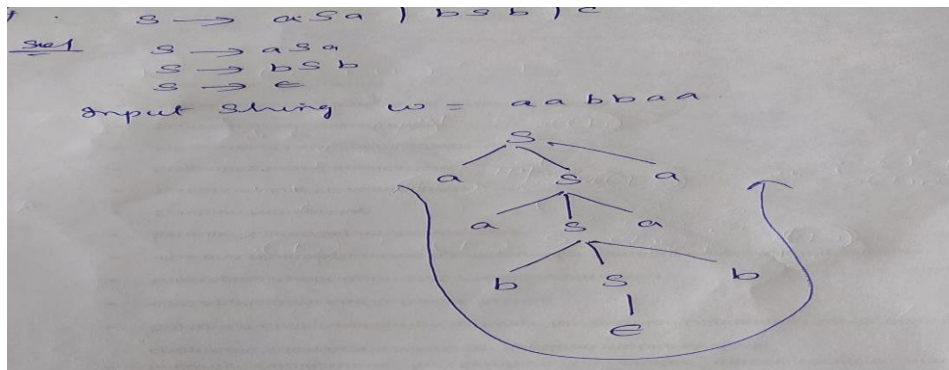 S → aSa | bSb | ε
Sol S → aSa
S → bSb
S → ε
Input String w = aabbaa
S
a S a
a S a
b S b
ε